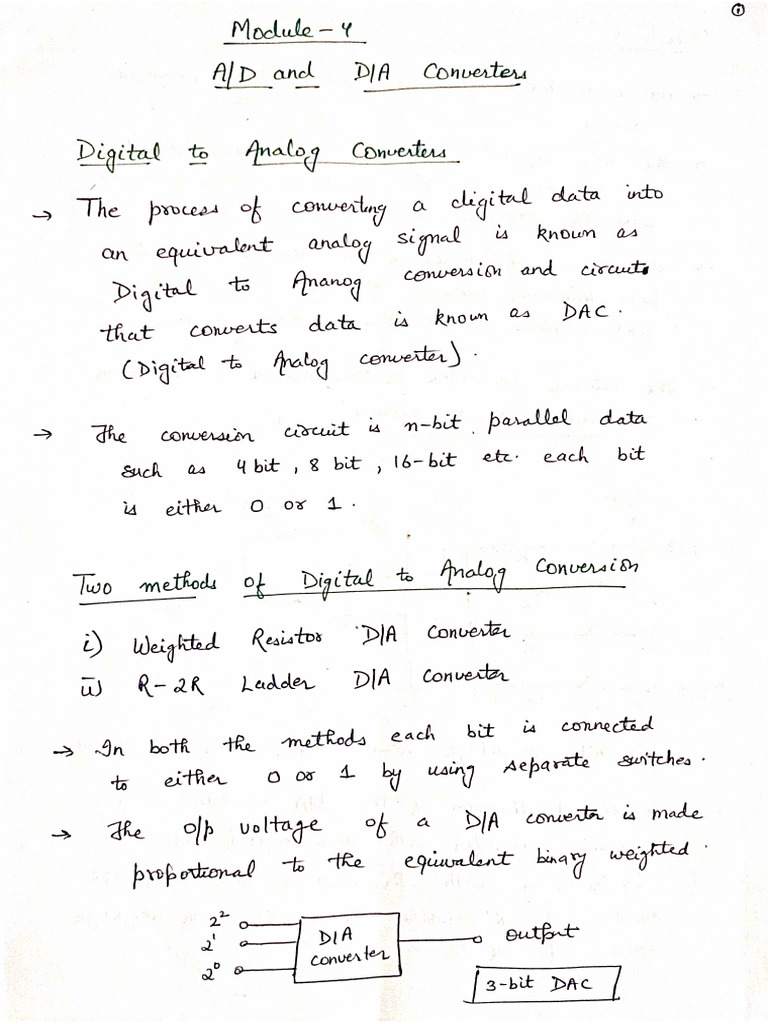 ①
Module-4
A/D and D/A Converters
Digital to Analog Converters
→ The process of converting a digital data into
an equivalent analog signal is known as
Digital to Ananog conversion and circuit
that converts data is known as DAC.
(Digital to Analog converter).
→ The conversion circuit is n-bit parallel data
such as 4 bit, 8 bit, 16-bit etc. each bit
is either 0 or 1.
Two methods of Digital to Analog Conversion
i) Weighted Resistor D/A Converter
ii) R-2R Ladder D/A Converter
→ In both the methods each bit is connected
to either 0 or 1 by using separate switches.
→ The o/p voltage of a D/A converter is made
proportional to the equivalent binary weighted.
2²
2¹
2⁰
D/A
converter
output
3-bit DAC